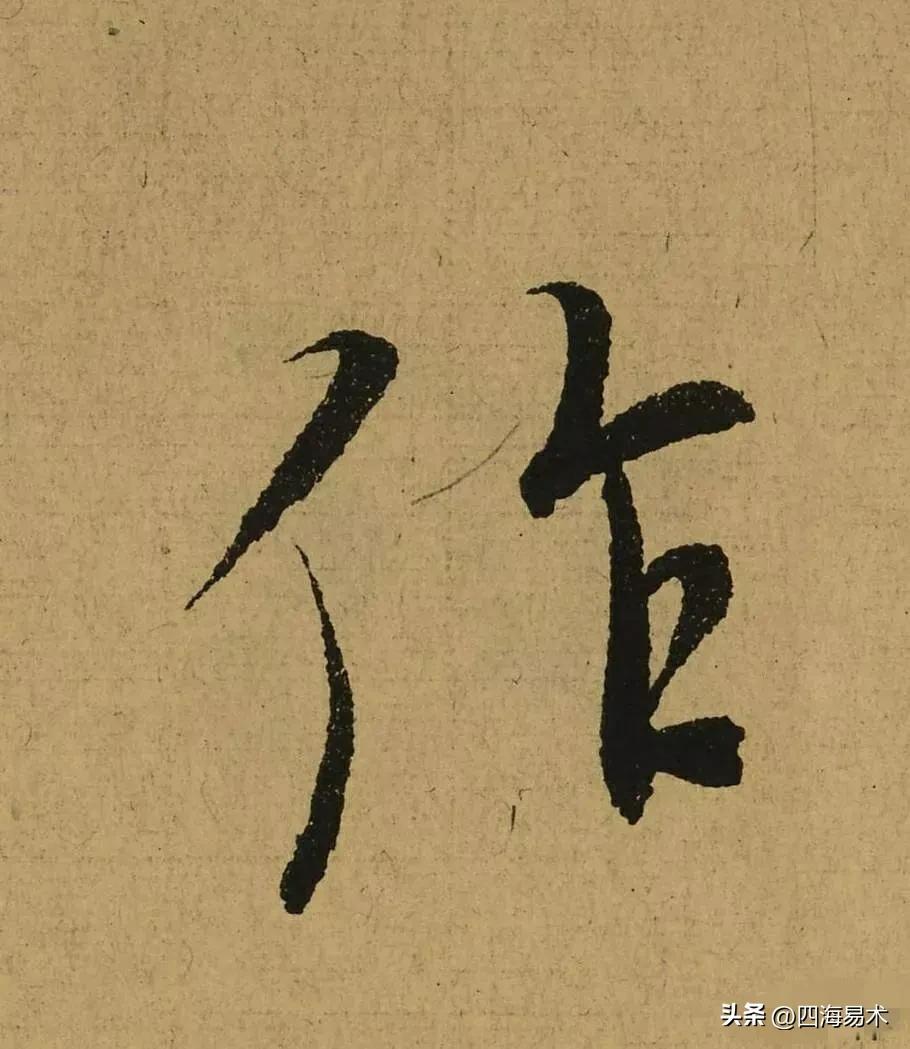 作
头条 @四海易术